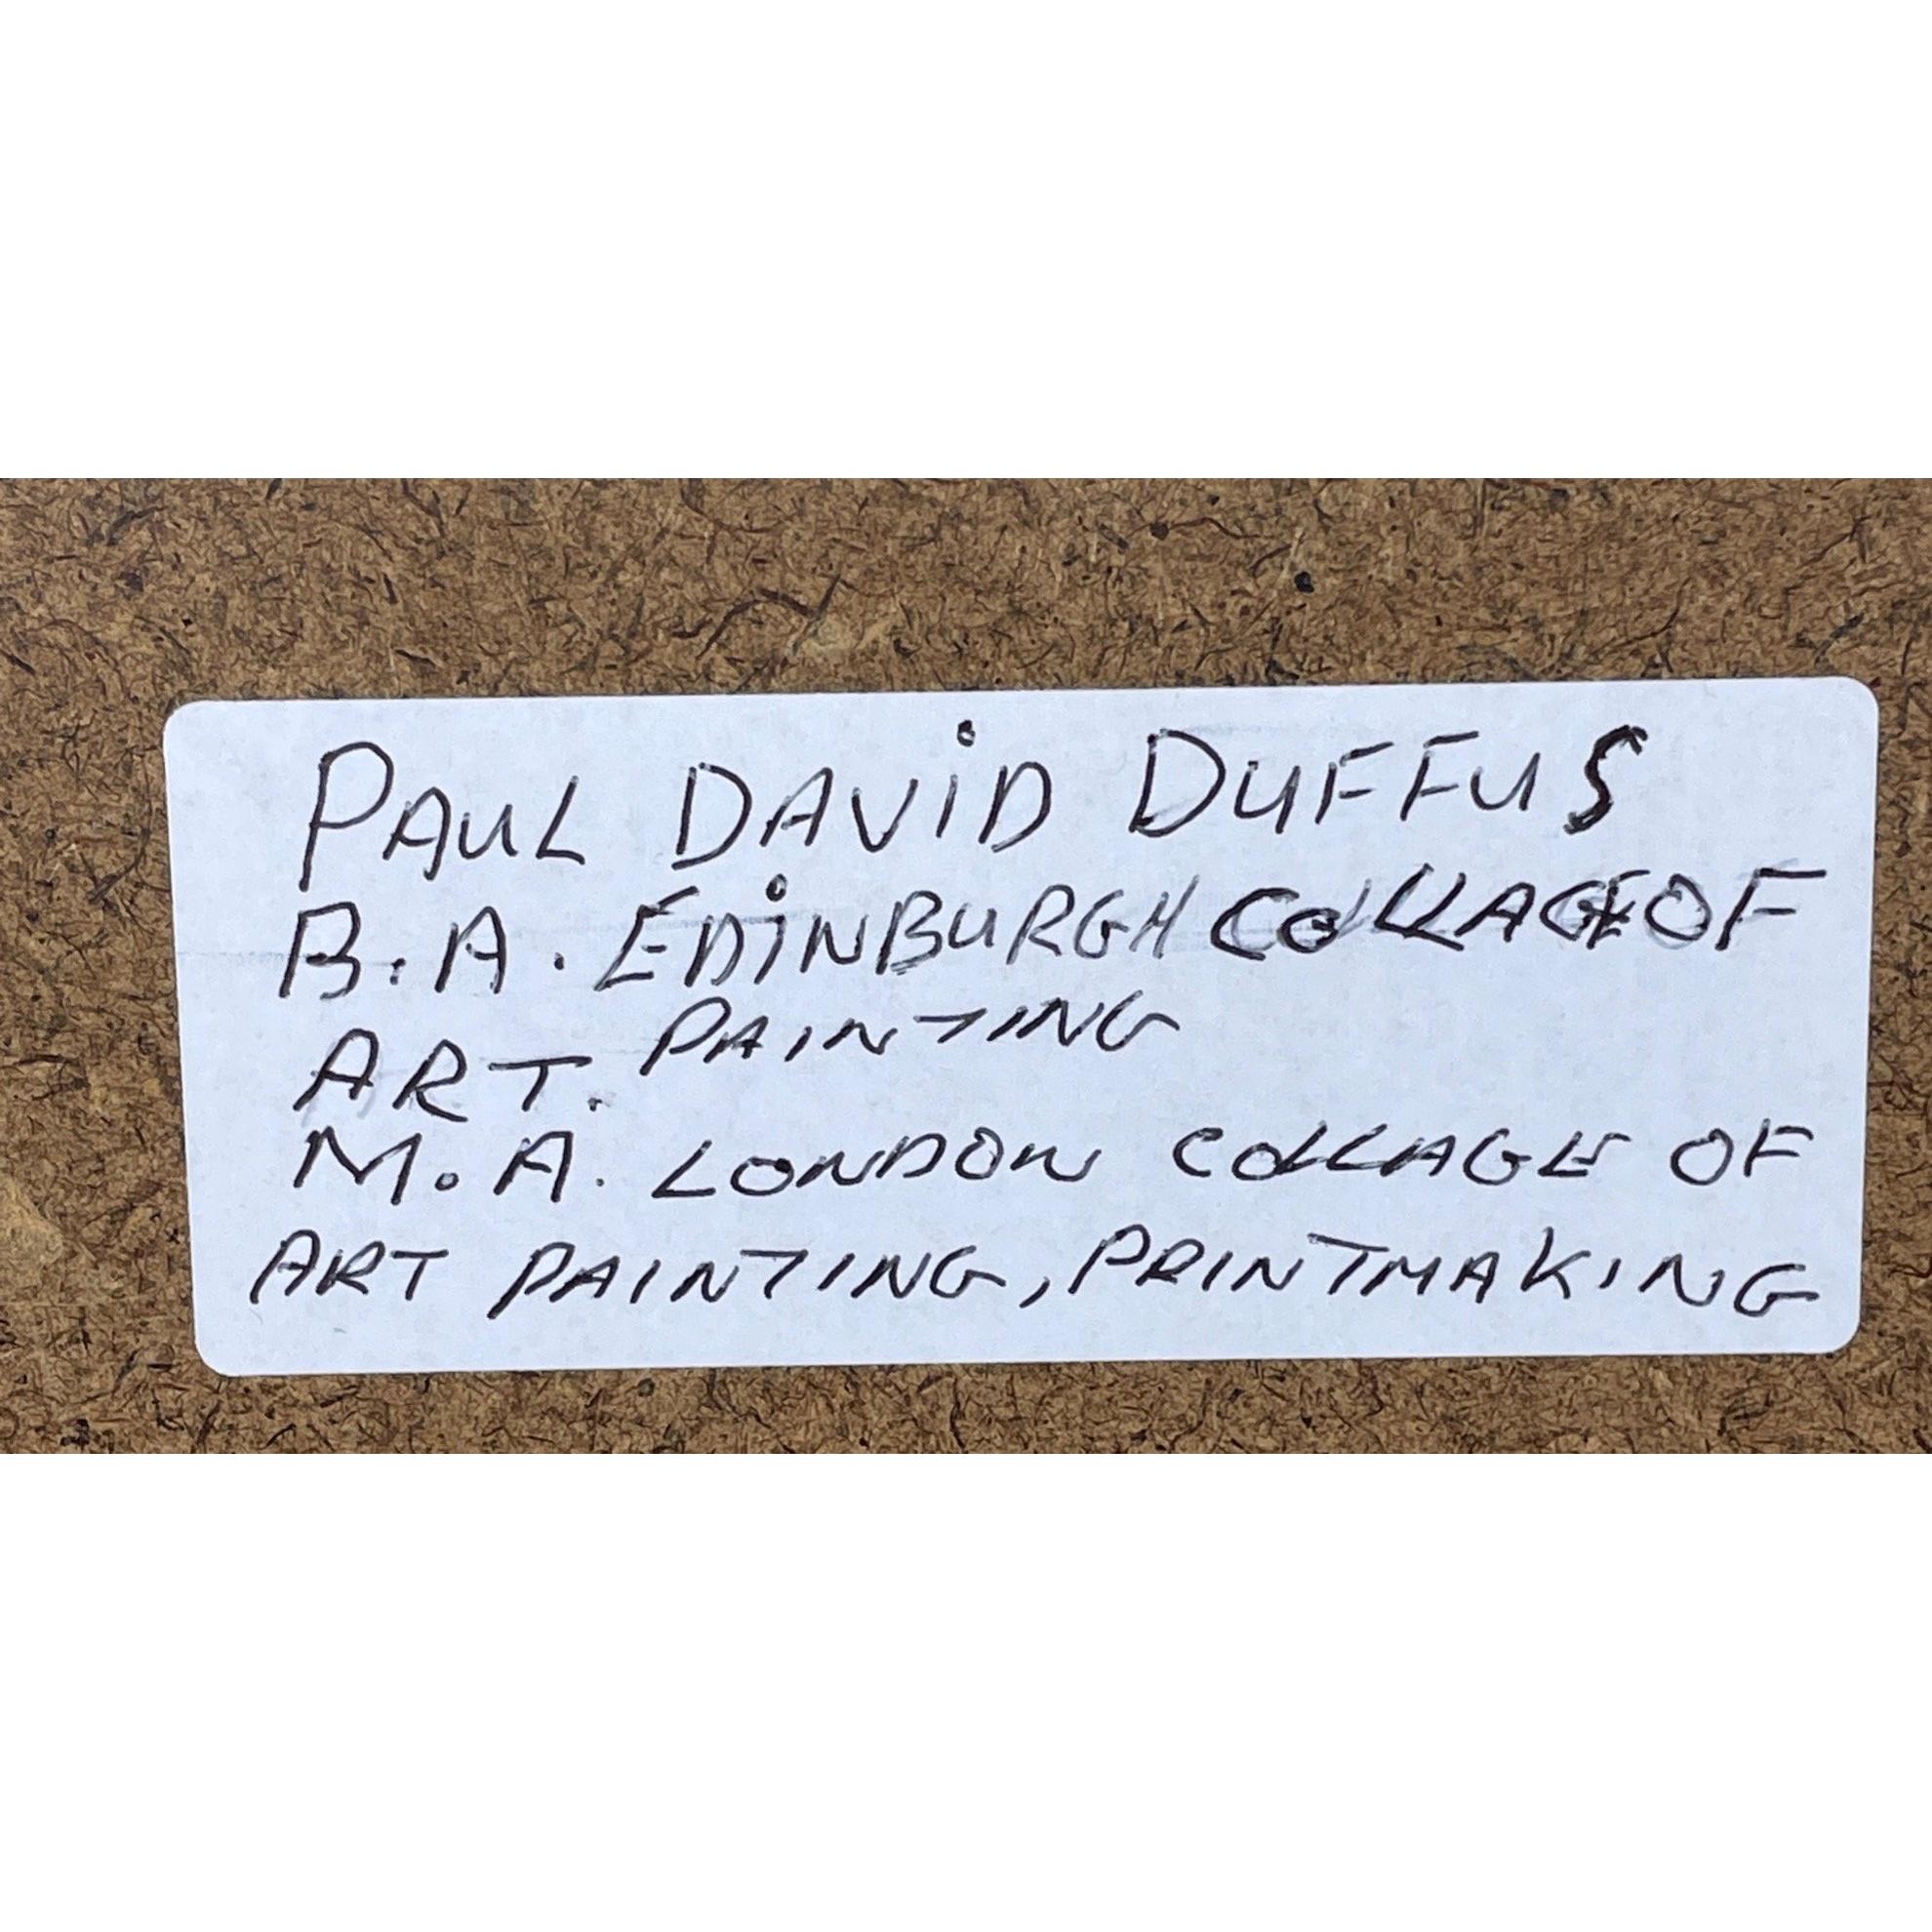 PAUL DAViD DUFFUS
B.A. EDiNBURGH COLLAGE OF
ART. PAINTING
M.A. LONDON COLLAGE OF
ART PAINTING, PRINTMAKING